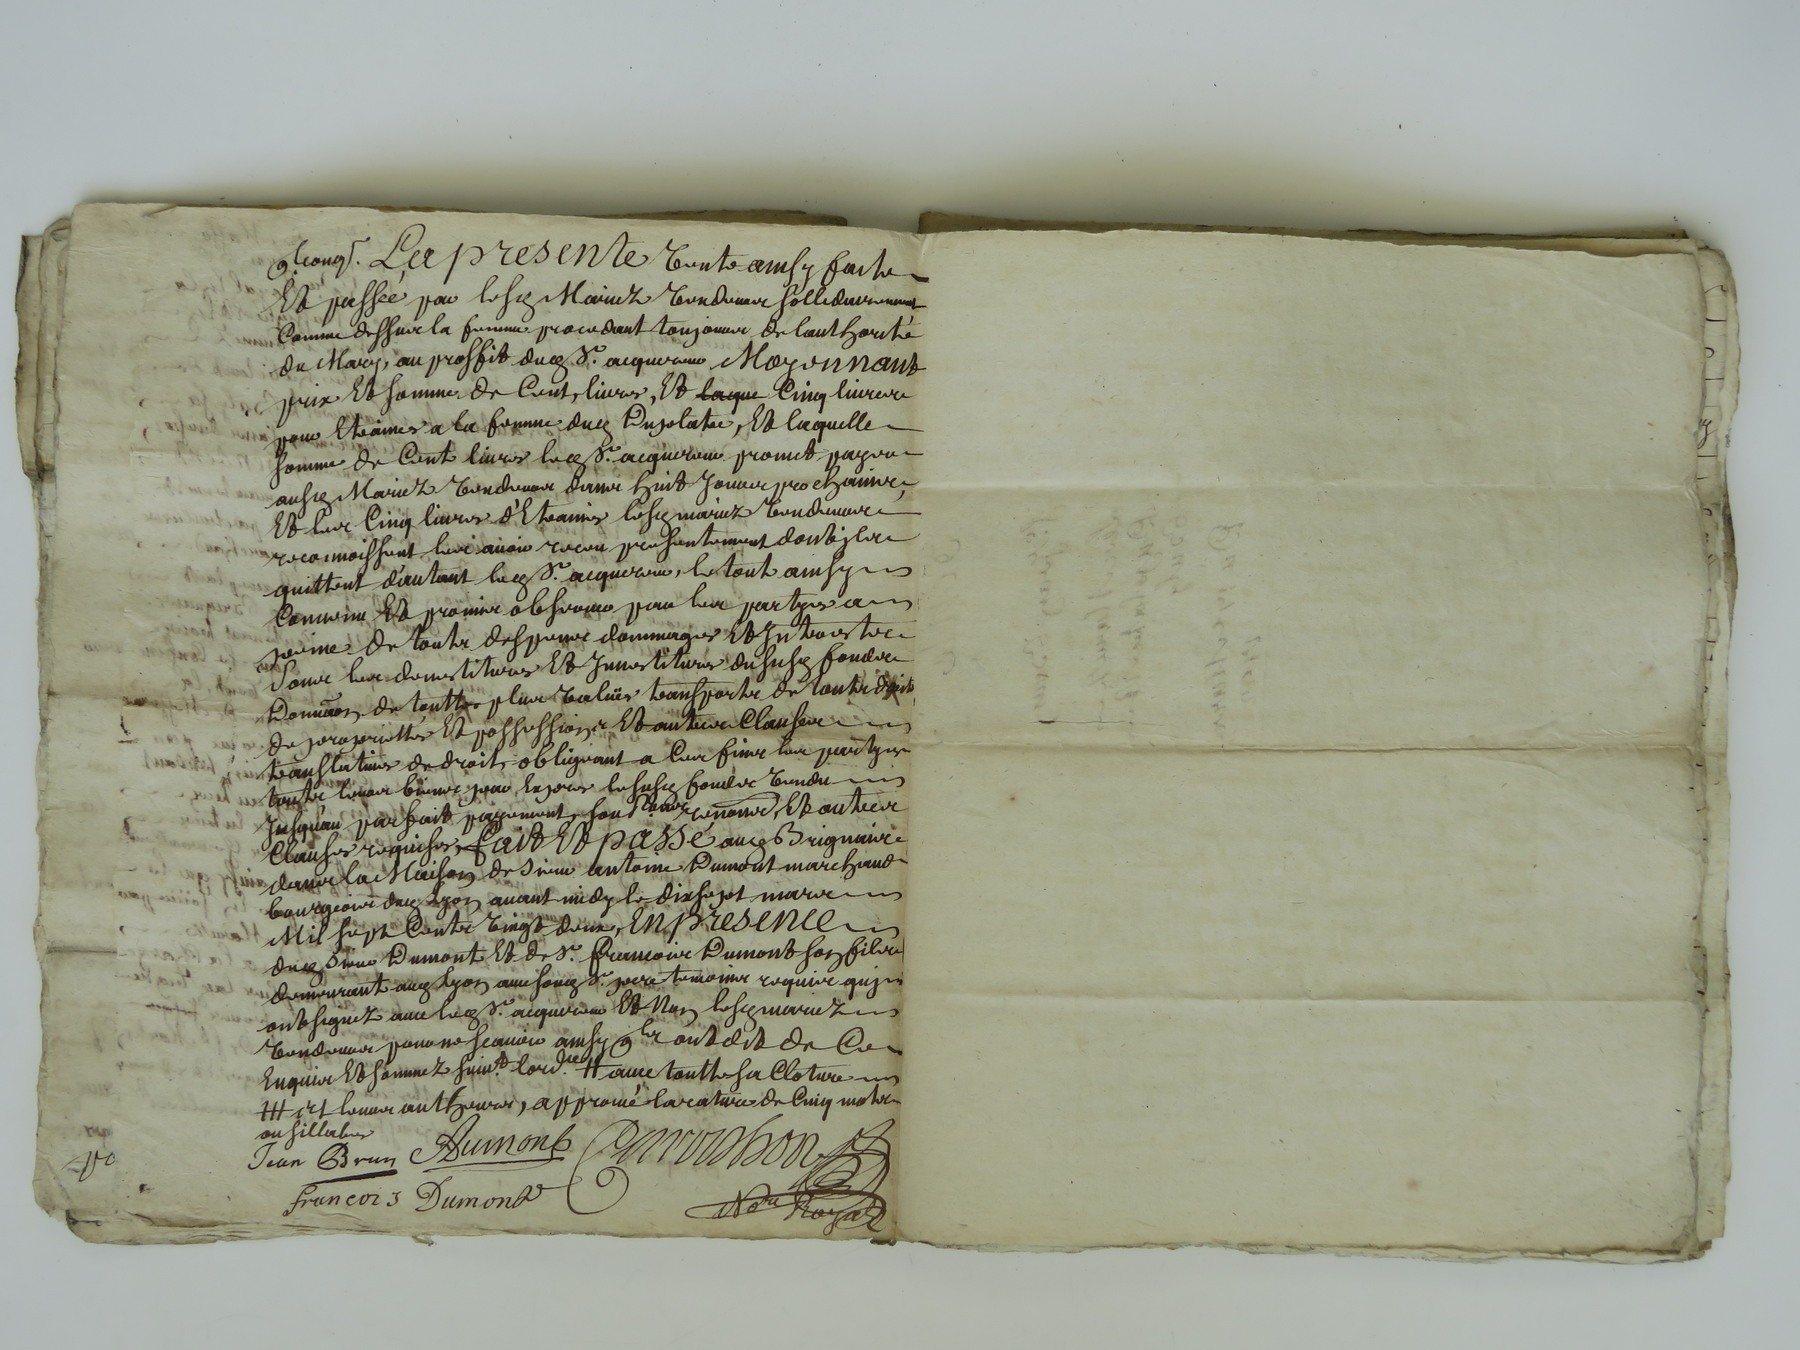 La presente vente ainsy faite
Et passée par lesd Mariez vendeurs sollidairement
Comme dessus la femme procedant toujours de l'authorité
du Mary, au proffit dud Sr. acquereur Moyennant
prix Et somme de Cent livres, Et laque Cinq livres
pour Etraines a la femme dud, Et laquelle
somme de Cent livres led Sr. acquereur promet payer
ausd Mariez vendeurs dans huit Jours prochains
Et les Cinq livres d'Etraines lesd mariez vendeurs
reconnoissent les avoir receu presentement dont ils
quittent d'autant led Sr. acquereur, le tout ainsy
Convenu Et promis observer par les partyes a
peine de touts despens dommages Et Interests
Sous les devestitures Et Investitures dususd fonds
de touttes plus values transports de touts droits
de proprietés Et possessions Et autres Clauses
translatives de droit, obligeant a Ces fins les partyes
touts leurs biens, pour Express lesusd fonds vendu
Jusqu'au parfait payement, sous renonces, Et autres
Clauses requises, fait Et passé aud Brignais
dans la Maison de Sieur antoine Dumont marchand
bourgeois dud Lyon avant midy le dixsept mars
Mil sept Cents vingt deux, En presence
dud Sieur Dumont Et de Sr. francois Dumont son fils
demeurant aud Lyon avec sond Sr. pere temoins requis qui
ont signez avec led Sr. acquereur Et Non lesd mariez
vendeurs pour ne scavoir ainsy qls ont dit de Ce
Enquis Et sommez suivt. lord.ce # avec toutte sa Cloture
### et leurs autheurs, approuvé la rature de Cinq mots
ou sillabes
Jean Brun Dumont
Francois Dumont Nore Royal